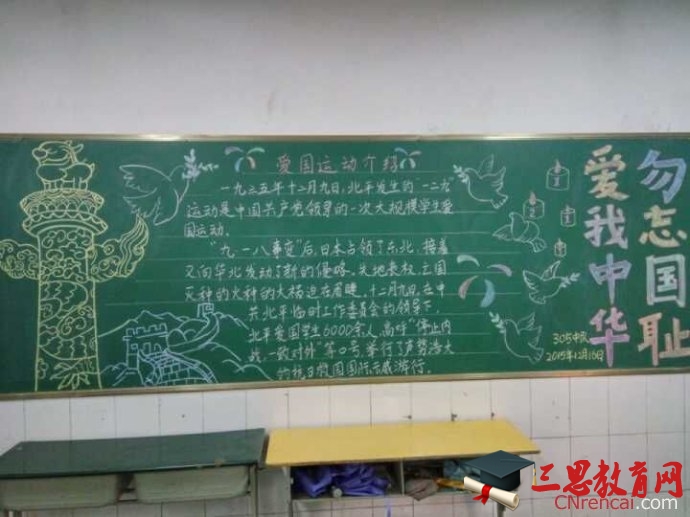 爱国运动介绍
一九三五年十二月九日,北平发生的“一二九”
运动是中国共产党领导的一次大规模学生爱
国运动。
“九·一八事变”后,日本占领了东北,接着
又向华北发动了新的侵略。失地丧权,亡国
灭种的大祸迫在眉睫。十二月九日,在中
共北平临时工作委员会的领导下,
北平爱国学生6000余人,高呼“停止内
战,一致对外”等口号,举行了声势浩大
的抗日救国国际示威游行。
勿忘国耻
爱我中华
305中队
2015年12月10日
三思教育网
CNrencai.com